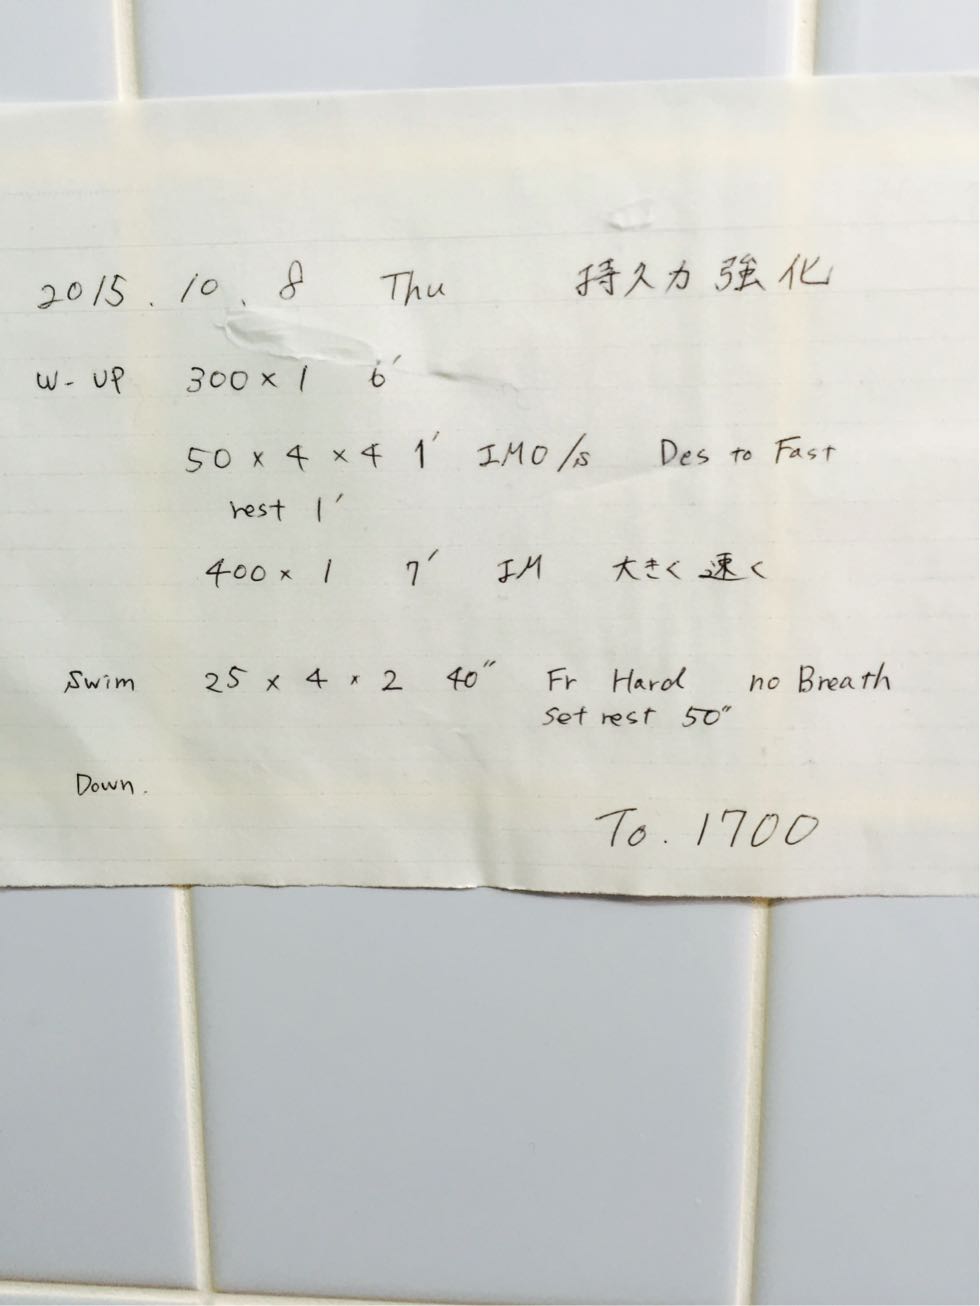 2015.10.8 Thu 持久力強化
W-UP 300×1 6′
50×4×4 1′ IMO/s Des to Fast
rest 1′
400×1 7′ IM 大きく速く
Swim 25×4×2 40″ Fr Hard no Breath
Set rest 50″
Down.
To. 1700